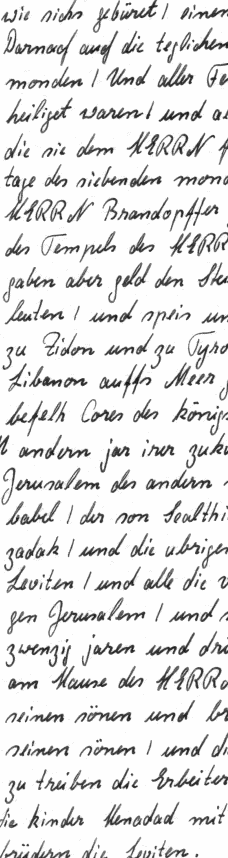 wie sichs gebüret / einen
Darnach auch die teglichen
monden / Und aller Fe
heiliget waren / und al
die sie dem HERRN
tage des siebenden mond
HERRN Brandopffer
des Tempels des HERR
gaben aber geld den Ste
leuten / und speis un
zu Zidon und zu Tyro
Libanon auffs Meer
befelh Cores des königs
andern jar irer zuku
Jerusalem des andern
babel / der son Sealthi
zadak / und die ubrigen
Leviten / und alle die v
gen Jerusalem / und
zwenzig jaren und drü
am Hause des HERRn
seinen sönen und br
seinen sönen / und di
zu treiben die Erbeiter
die kinder Henadad mit
brüdern die Leviten.